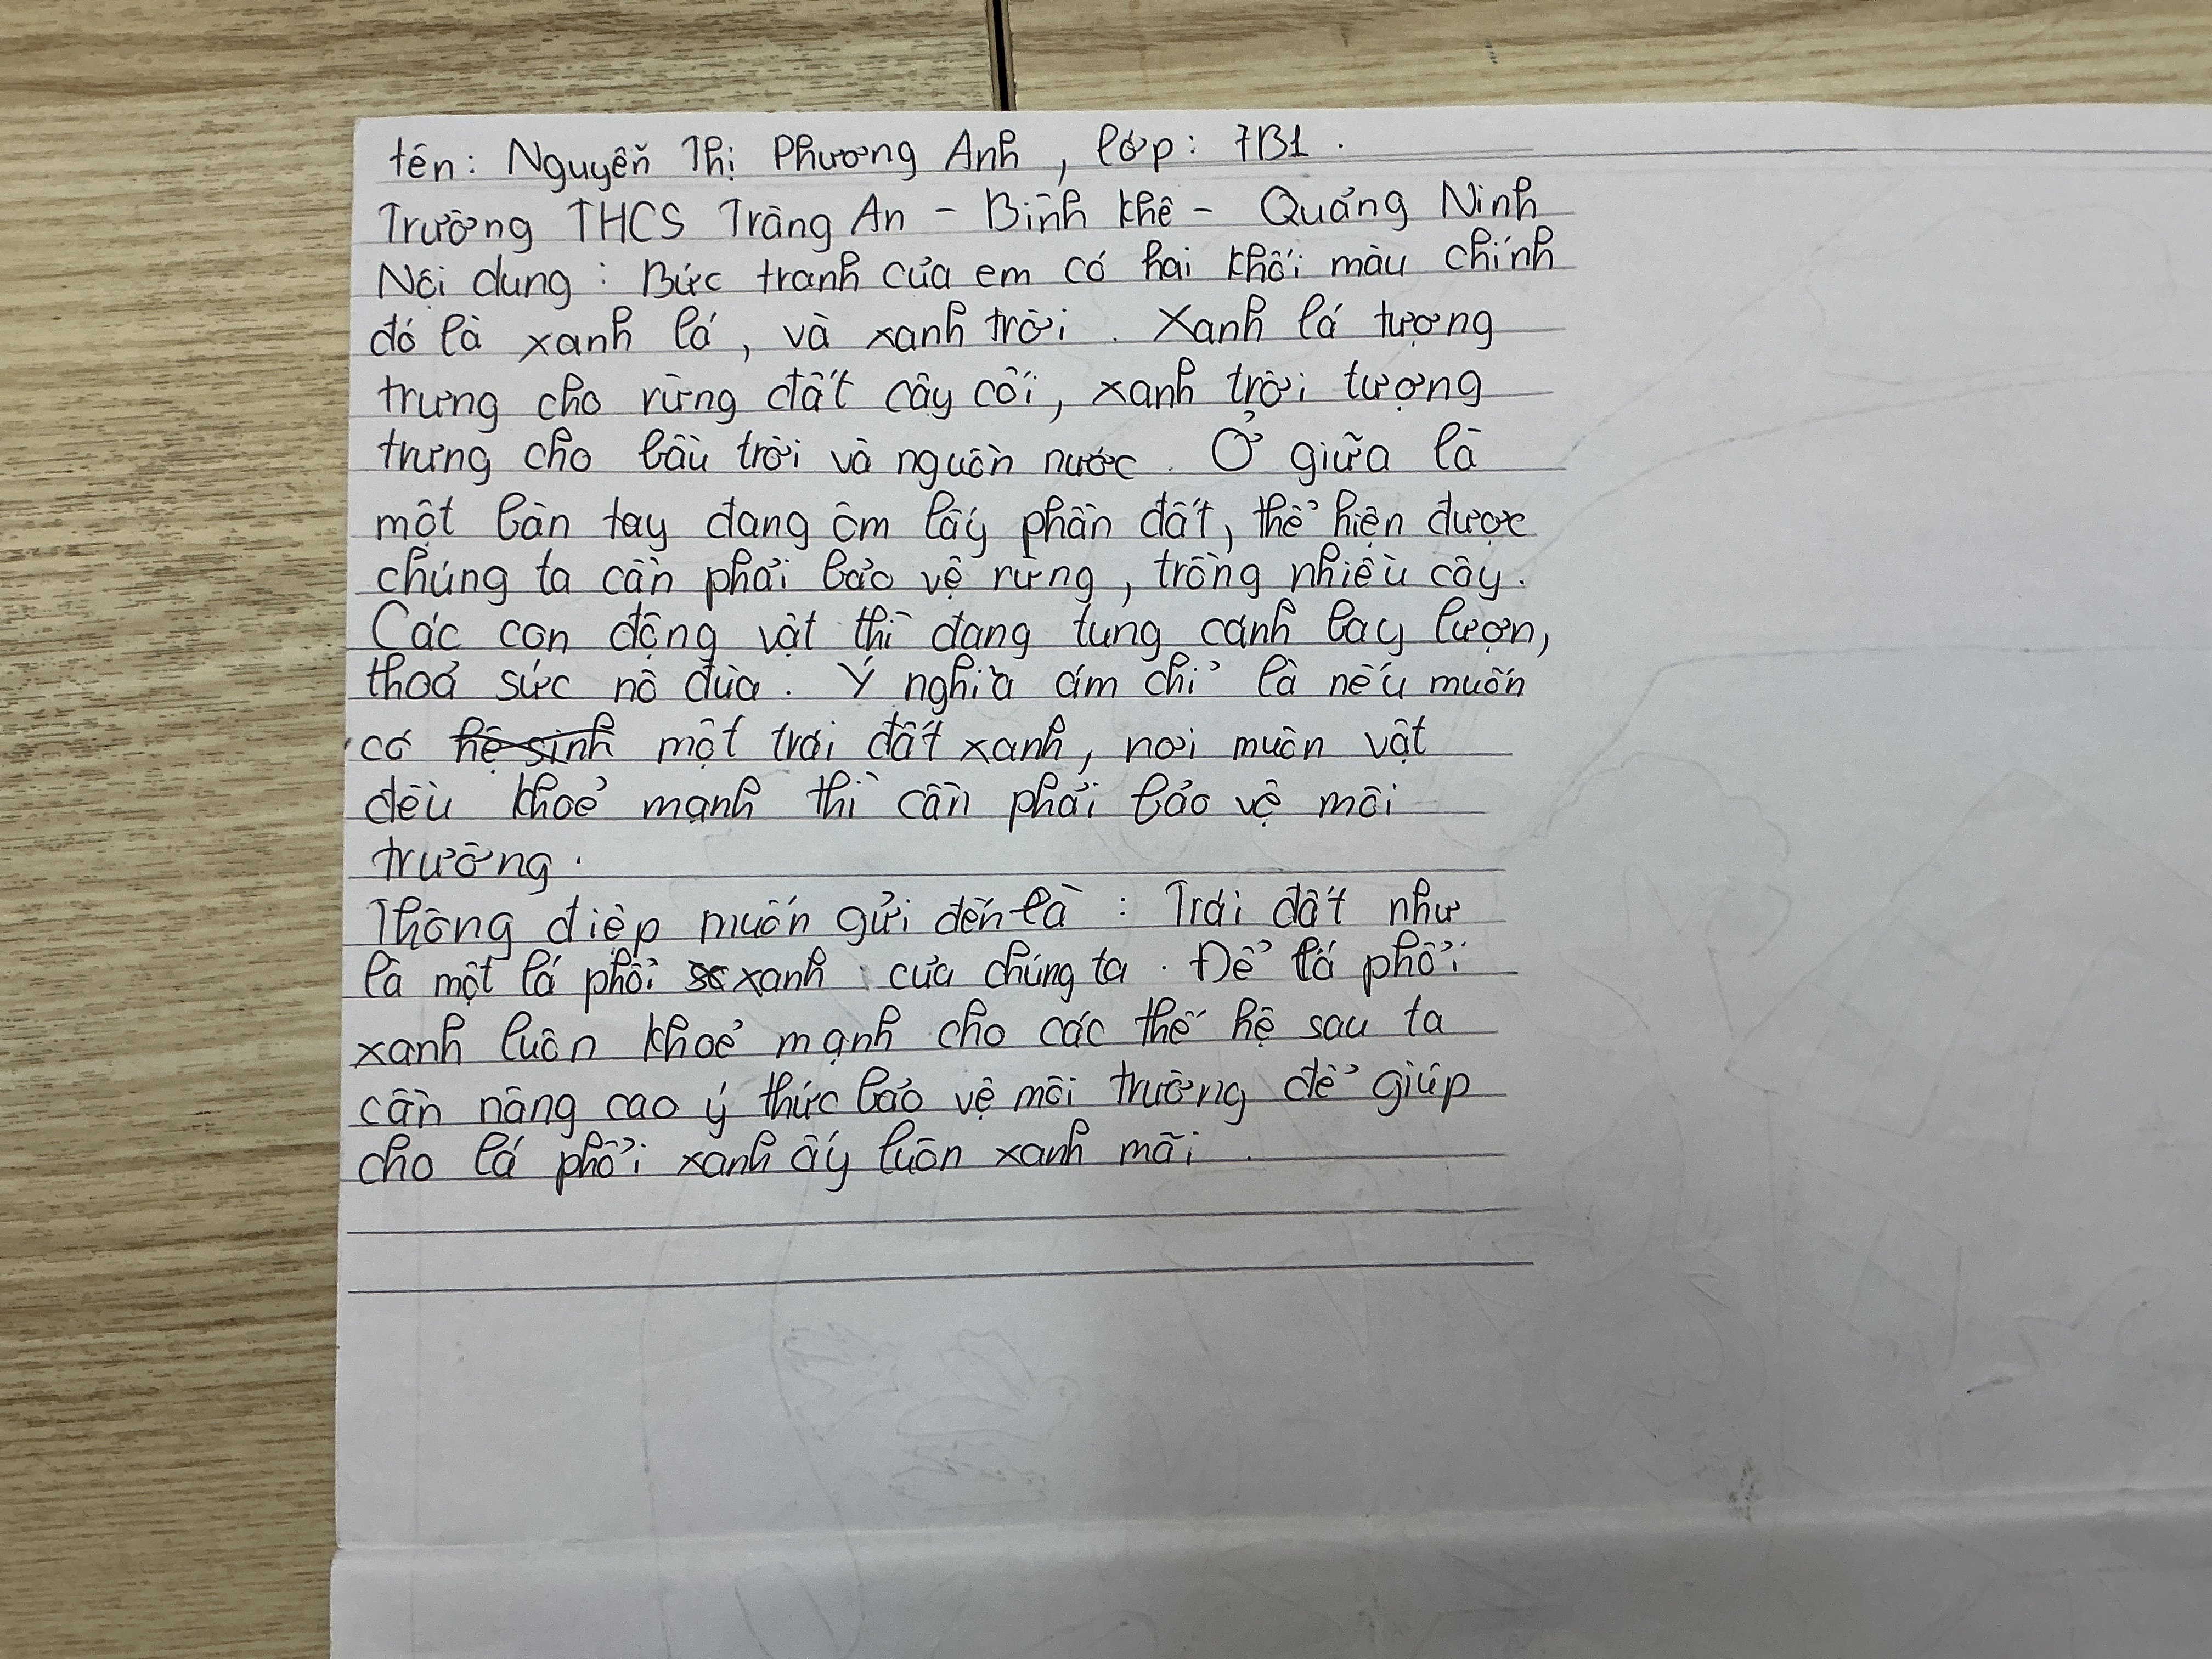 tên: Nguyễn Thị Phương Anh, lớp: 7B1.
Trường THCS Tràng An - Bình Khê - Quảng Ninh
Nội dung: Bức tranh của em có hai khối màu chính
đó là xanh lá, và xanh trời. Xanh lá tượng
trưng cho rừng đất cây cối, xanh trời tượng
trưng cho bầu trời và nguồn nước. Ở giữa là
một bàn tay đang ôm lấy phần đất, thể hiện được
chúng ta cần phải bảo vệ rừng, trồng nhiều cây.
Các con động vật thì đang tung cánh bay lượn,
thoả sức nô đùa. Ý nghĩa ám chỉ là nếu muốn
có hệ sinh một trái đất xanh, nơi muôn vật
đều khoẻ mạnh thì cần phải bảo vệ môi
trường.
Thông điệp muốn gửi đến là: Trái đất như
là một lá phổi xanh của chúng ta. Để lá phổi
xanh luôn khoẻ mạnh cho các thế hệ sau ta
cần nâng cao ý thức bảo vệ môi trường để giúp
cho lá phổi xanh ấy luôn xanh mãi.